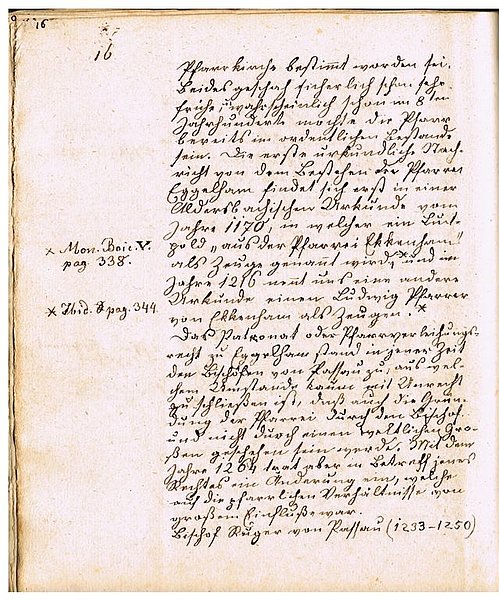 16
16
Pfarrkirche bestimmt worden sei.
Beides geschah sicherlich schon sehr
frühe, wahrscheinlich schon im 8ten
Jahrhunderte mochte die Pfarr
bereits in ordentlichem Bestande
sein. Die erste urkundliche Nach-
richt von dem Bestehen der Pfarrei
Eggelham findet sich erst in einer
Aldersbachischen Urkunde vom
Jahre 1170 in welcher ein Luit-
pold „aus der Pfarrei Ekkenham"
als Zeuge genannt wird, × und im
Jahre 1216 nent uns eine andere
Urkunde einen Ludwig Pfarrer
von Ekkenham als Zeugen. *
× Mon. Boic. V.
pag. 338.
* Ibid. pag. 344
Das Patronat oder Pfarrverleihungs-
recht zu Eggelham stand in jener Zeit
den Bischöfen von Passau zu, aus wel-
chem Umstande kaum mit Unrecht
zu schließen ist, daß auch die Grün-
dung der Pfarrei durch den Bischof
und nicht durch einen weltlichen Gro-
ßen geschehen sein werde. Mit dem
Jahre 1264 trat aber in Betreff jenes
Rechtes ein Änderung ein, welche
auf die pfarrlichen Verhältnisse von
großem Einfluße war.
Bischof Rüger von Passau (1233–1250)